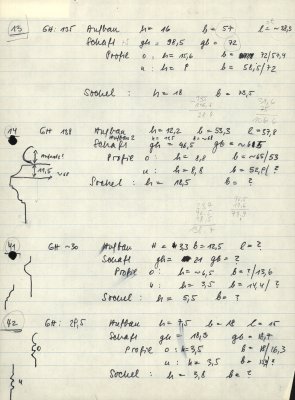 13 GH: 135 Aufbau h = 16 b = 57 l = ~38,3
Schaft gh = 98,5 gb = 72
Profile o: h = 15,6 b = 72/57,4
u: h = ? b = 58,5/72
Sockel: h = 18 b = 73,5
14 GH 138 Aufbau h = 12,2 b = 53,3 l = 57,8
Schaft gh = 96,5 gb =
Profile o: h = 8,8 b = ~65/53
u: h = 8,8 b =
11,5
Sockel: h = 18,5 b = ?
41 GH ~30 Aufbau H = 3,3 b = 12,5 l = ?
Schaft gh = 21 gb = ?
Profile o: h = ~4,5 b = ?/13,6
u: h = 3,5 b = 14,4/?
Sockel: h = 5,5 b = ?
42 GH: 29,5 Aufbau h = 7,5 b = 18 l = 15
Schaft gh = 18,3 gb = 18,7
Profile o: h = 3,5 b = 18/16,3
u: h = 3,5 b =
Sockel: h = 3,8 b = ?